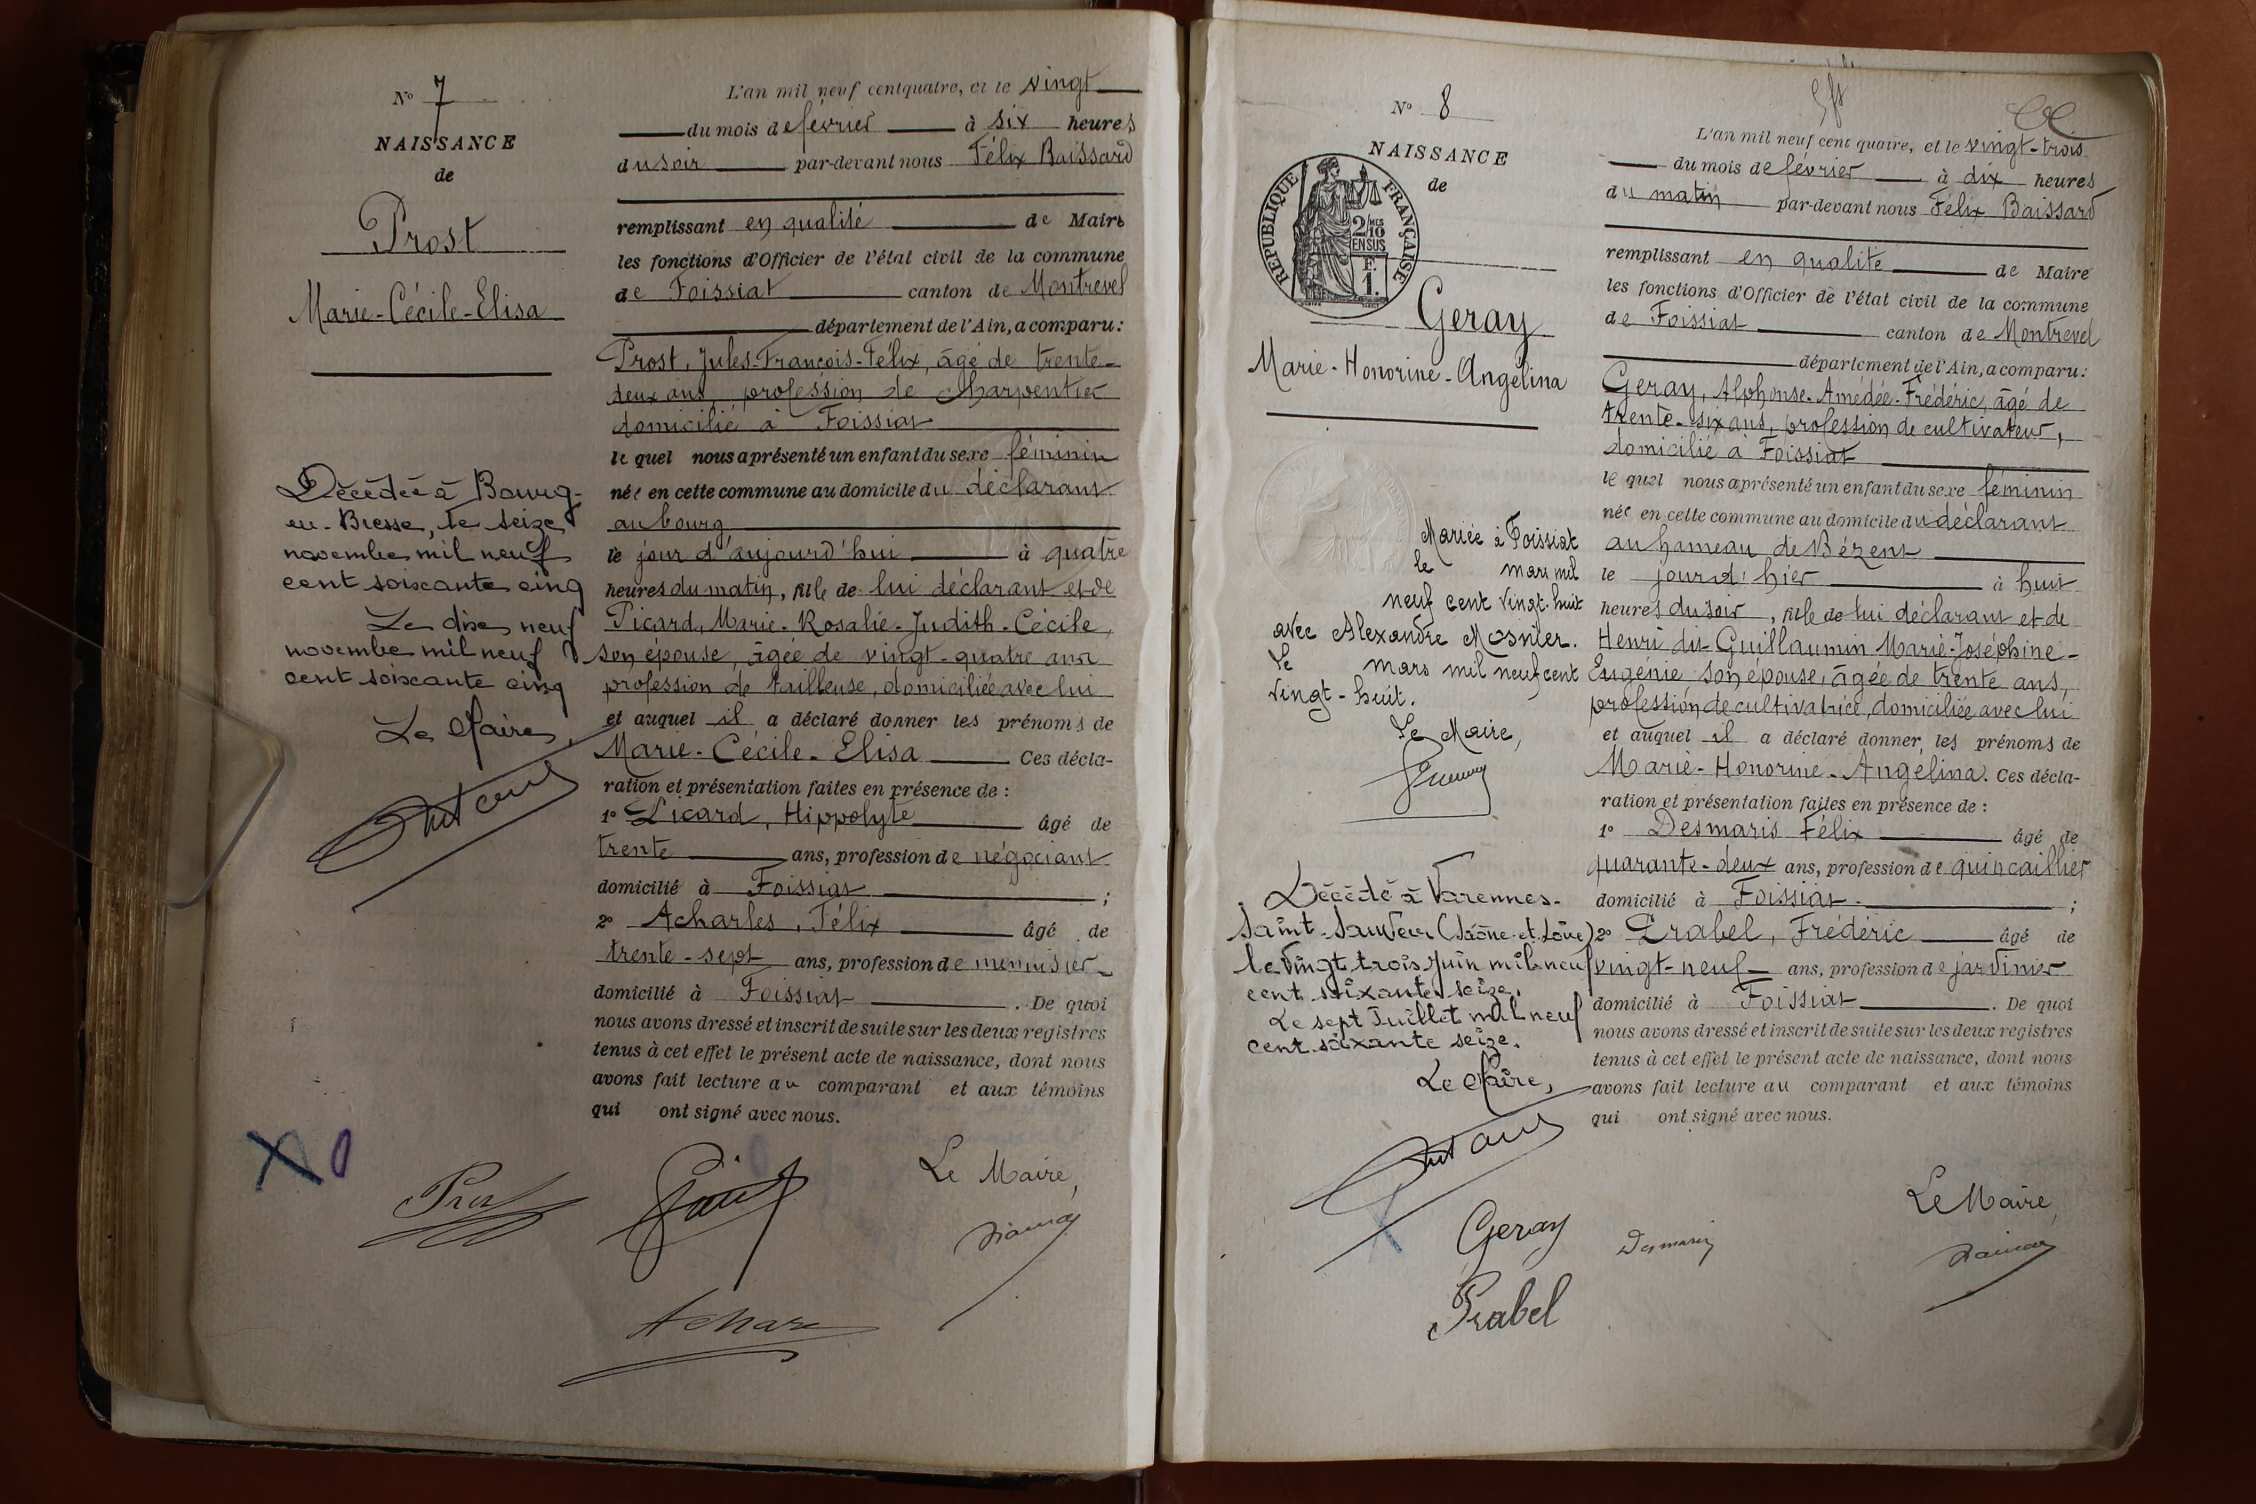 N° 7
NAISSANCE
de
Prost
Marie-Cécile-Elisa
Décédée à Bourg-
en-Bresse, le seize
novembre mil neuf
cent soixante cinq
Le dix neuf
novembre mil neuf
cent soixante cinq
Le Maire,
L'an mil neuf cent quatre, et le vingt
du mois de février à six heures
du soir par-devant nous Félix Baissard
remplissant en qualité de Maire
les fonctions d'Officier de l'état civil de la commune
de Foissiat canton de Montrevel
département de l'Ain, a comparu:
Prost, Jules-François-Félix, âgé de trente-
deux ans, profession de charpentier
domicilié à Foissiat
le quel nous a présenté un enfant du sexe féminin
née en cette commune au domicile du déclarant
au bourg
le jour d'aujourd'hui à quatre
heures du matin, fille de lui déclarant et de
Picard, Marie-Rosalie-Judith-Cécile,
son épouse, âgée de vingt-quatre ans
profession de tailleuse, domiciliée avec lui
et auquel il a déclaré donner les prénoms de
Marie-Cécile-Elisa Ces décla-
ration et présentation faites en présence de :
1° Picard, Hippolyte âgé de
trente ans, profession de négociant
domicilié à Foissiat ;
2° Acharles, Félix âgé de
trente-sept ans, profession de menuisier
domicilié à Foissiat . De quoi
nous avons dressé et inscrit de suite sur les deux registres
tenus à cet effet le présent acte de naissance, dont nous
avons fait lecture au comparant et aux témoins
qui ont signé avec nous.
Le Maire,
N° 8
NAISSANCE
de
RÉPUBLIQUE FRANÇAISE
2/10 MES
EN SUS
F.
1.
Geray
Marie-Honorine-Angelina
Mariée à Foissiat
le mars mil
neuf cent vingt-huit
avec Alexandre Mosnier.
Le mars mil neuf cent
vingt-huit.
Le Maire,
Décédé à Varennes-
Saint-Sauveur (Saône-et-Loire)
le vingt trois Juin mil neuf
cent soixante seize.
Le sept Juillet mil neuf
cent soixante seize.
Le Maire,
L'an mil neuf cent quatre, et le vingt-trois
du mois de février à dix heures
du matin par-devant nous Félix Baissard
remplissant en qualité de Maire
les fonctions d'Officier de l'état civil de la commune
de Foissiat canton de Montrevel
département de l'Ain, a comparu:
Geray, Alphonse-Amédée-Frédéric, âgé de
trente-six ans, profession de cultivateur,
domicilié à Foissiat
le quel nous a présenté un enfant du sexe féminin
née en cette commune au domicile du déclarant
au hameau de Bézent
le jour d'hier à huit
heures du soir, fille de lui déclarant et de
Henri du Guillaumin Marie-Joséphine-
Eugénie son épouse, âgée de trente ans,
profession de cultivatrice, domiciliée avec lui
et auquel il a déclaré donner les prénoms de
Marie-Honorine-Angelina. Ces décla-
ration et présentation faites en présence de :
1° Desmaris Félix âgé de
quarante-deux ans, profession de quincaillier
domicilié à Foissiat ;
2° Prabel, Frédéric âgé de
vingt-neuf ans, profession de jardinier
domicilié à Foissiat . De quoi
nous avons dressé et inscrit de suite sur les deux registres
tenus à cet effet le présent acte de naissance, dont nous
avons fait lecture au comparant et aux témoins
qui ont signé avec nous.
Le Maire,
Geray
Desmaris
Prabel